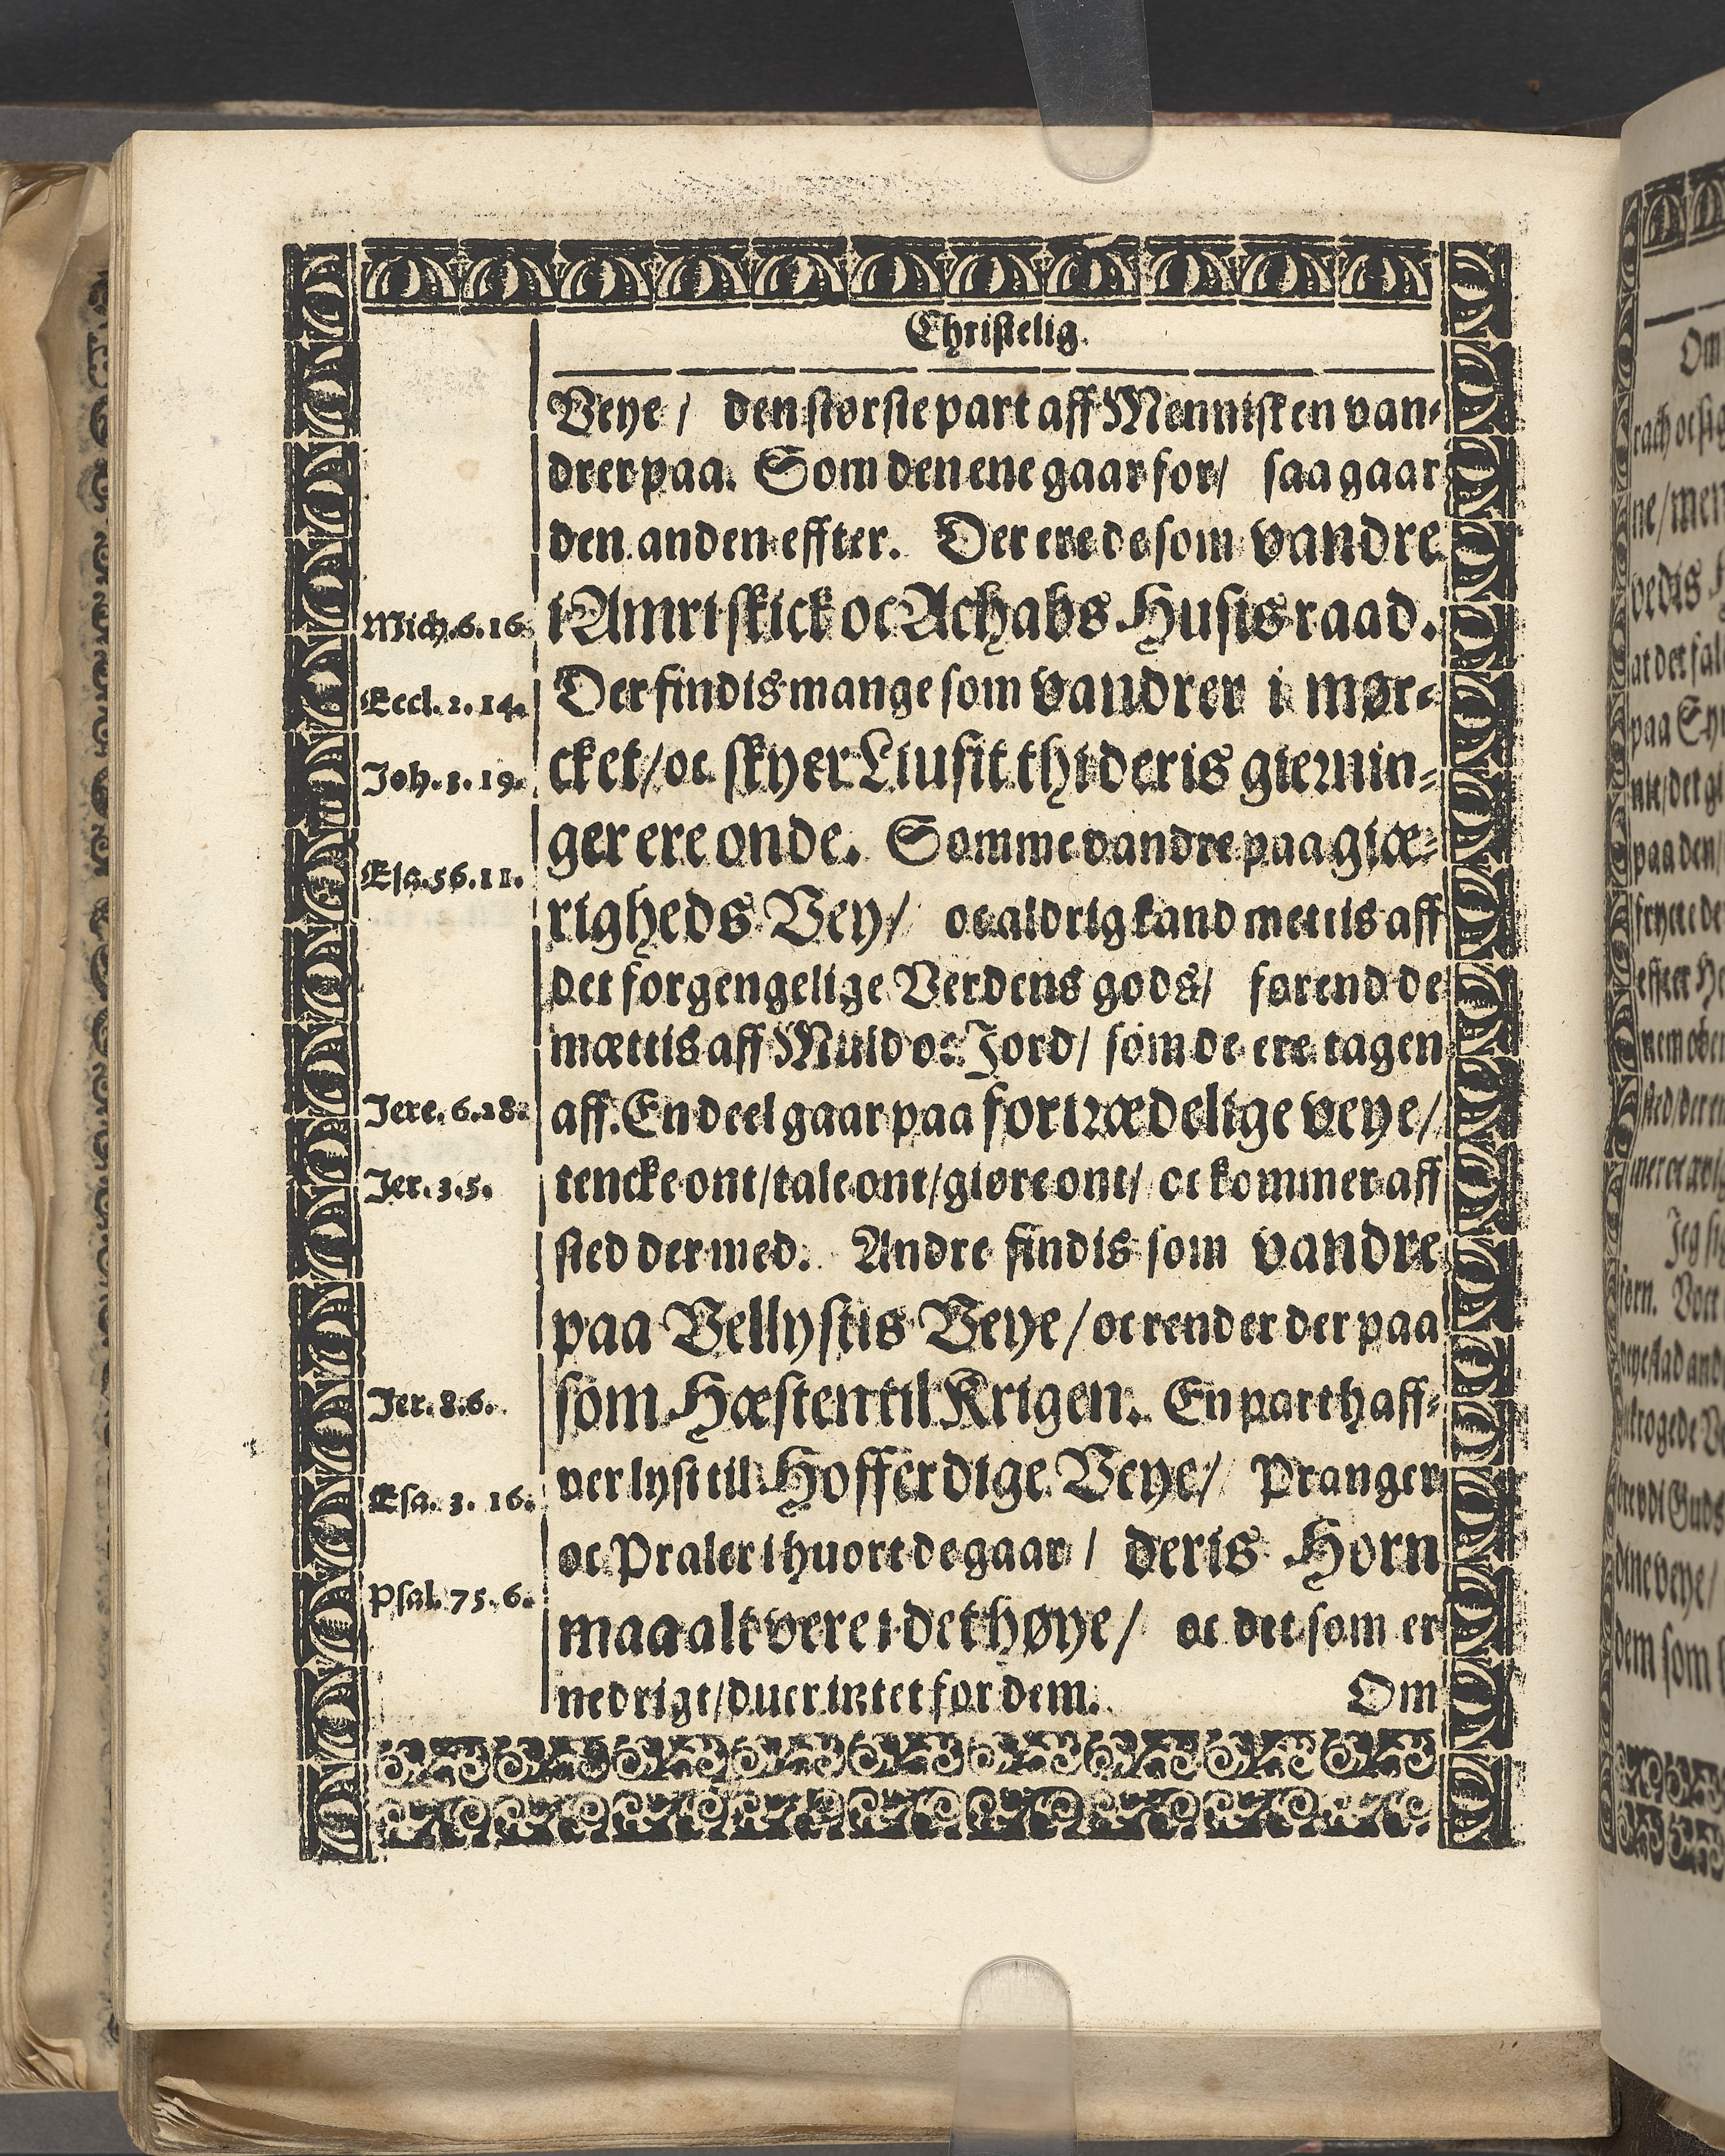 Christelig.
Veye / den største part aff Mennisken van-
drer paa. Som den ene gaar for / saa gaar
den anden effter. Der ere de som vandre
Mich. 6. 16. i Amri skick oc Achabs Husis raad.
Eccl. 2. 14. Der findis mange som vandrer i mør-
Joh. 3. 19. cket / oc skyer Liusit thi deris giernin-
ger ere onde. Somme vandre paa giæ-
Esa. 56. 11. righeds Vey / oc aldrig kand mettis aff
det forgengelige Verdens gods / førend de
mættis aff Muld oc Jord / som de ere tagen
Jere. 6. 28. aff. En deel gaar paa fortrædelige veye /
Jer. 3. 5. tencke ont / tale ont / giøre ont / oc kommer aff
sted der med. Andre findis som vandre
paa Vellystis Veye / oc render der paa
Jer. 8. 6. som Hæsten til Krigen. En part haff-
Esa. 3. 16. ver lyst til Hofferdige Veye / Pranger
oc Praler i huort de gaar / deris Horn
Psal. 75. 6. maa alt vere i det høye / oc det som er
nedrigt / duer intet for dem. Om